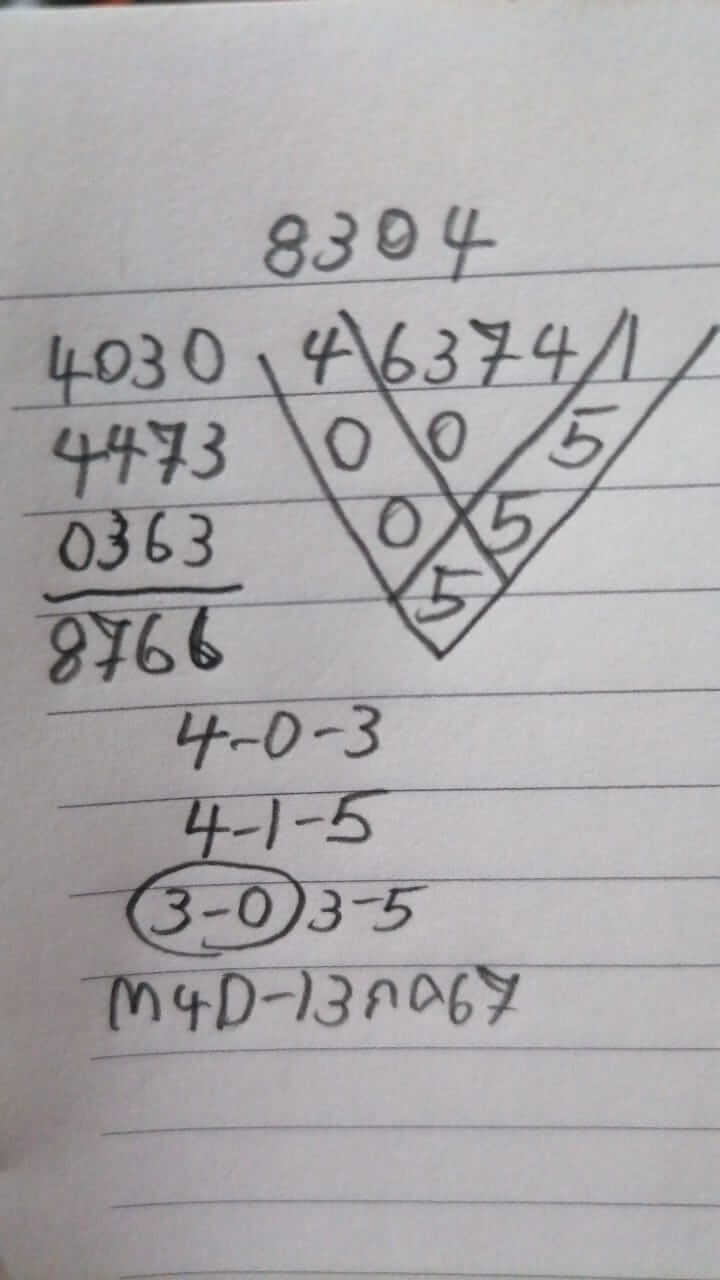 8304
4030 4 6374 1
4473 0 0 5
0363 0 5
8766 5
4-0-3
4-1-5
3-0 3-5
M4D-13 กอ67